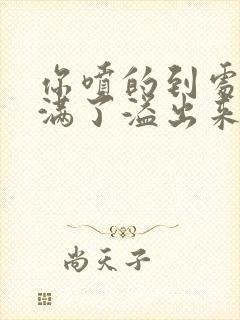 你喷的到处
满了溢出来
尚天子